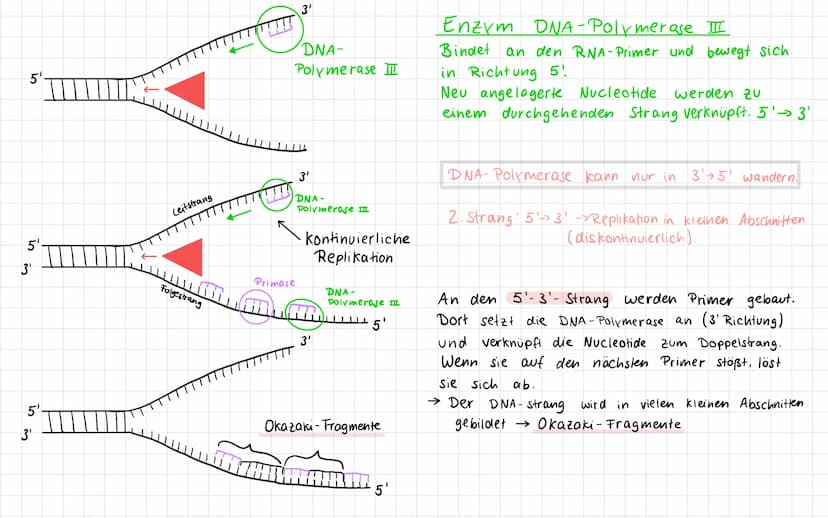 3'
DNA-
Polymerase III
5'
Enzym DNA-Polymerase III
Bindet an den RNA-Primer und bewegt sich
in Richtung 5'.
Neu angelagerte Nucleotide werden zu
einem durchgehenden Strang verknüpft. 5'→3'
3'
Leitstrang
DNA-
Polymerase III
Kontinuierliche
Replikation
5'
3'
Folgestrang
Primase
DNA-
Polymerase III
5'
DNA-Polymerase kann nur in 3'→5' wandern.
2. Strang: 5'→3' →Replikation in kleinen Abschnitten
(diskontinuierlich)
An den 5'-3'-Strang werden Primer gebaut.
Dort setzt die DNA-Polymerase an (3'Richtung)
und verknüpft die Nucleotide zum Doppelstrang.
Wenn sie auf den nächsten Primer stößt, löst
sie sich ab.
→ Der DNA-Strang wird in vielen kleinen Abschnitten
gebildet → Okazaki-Fragmente
3'
5'
3'
Okazaki-Fragmente
5'